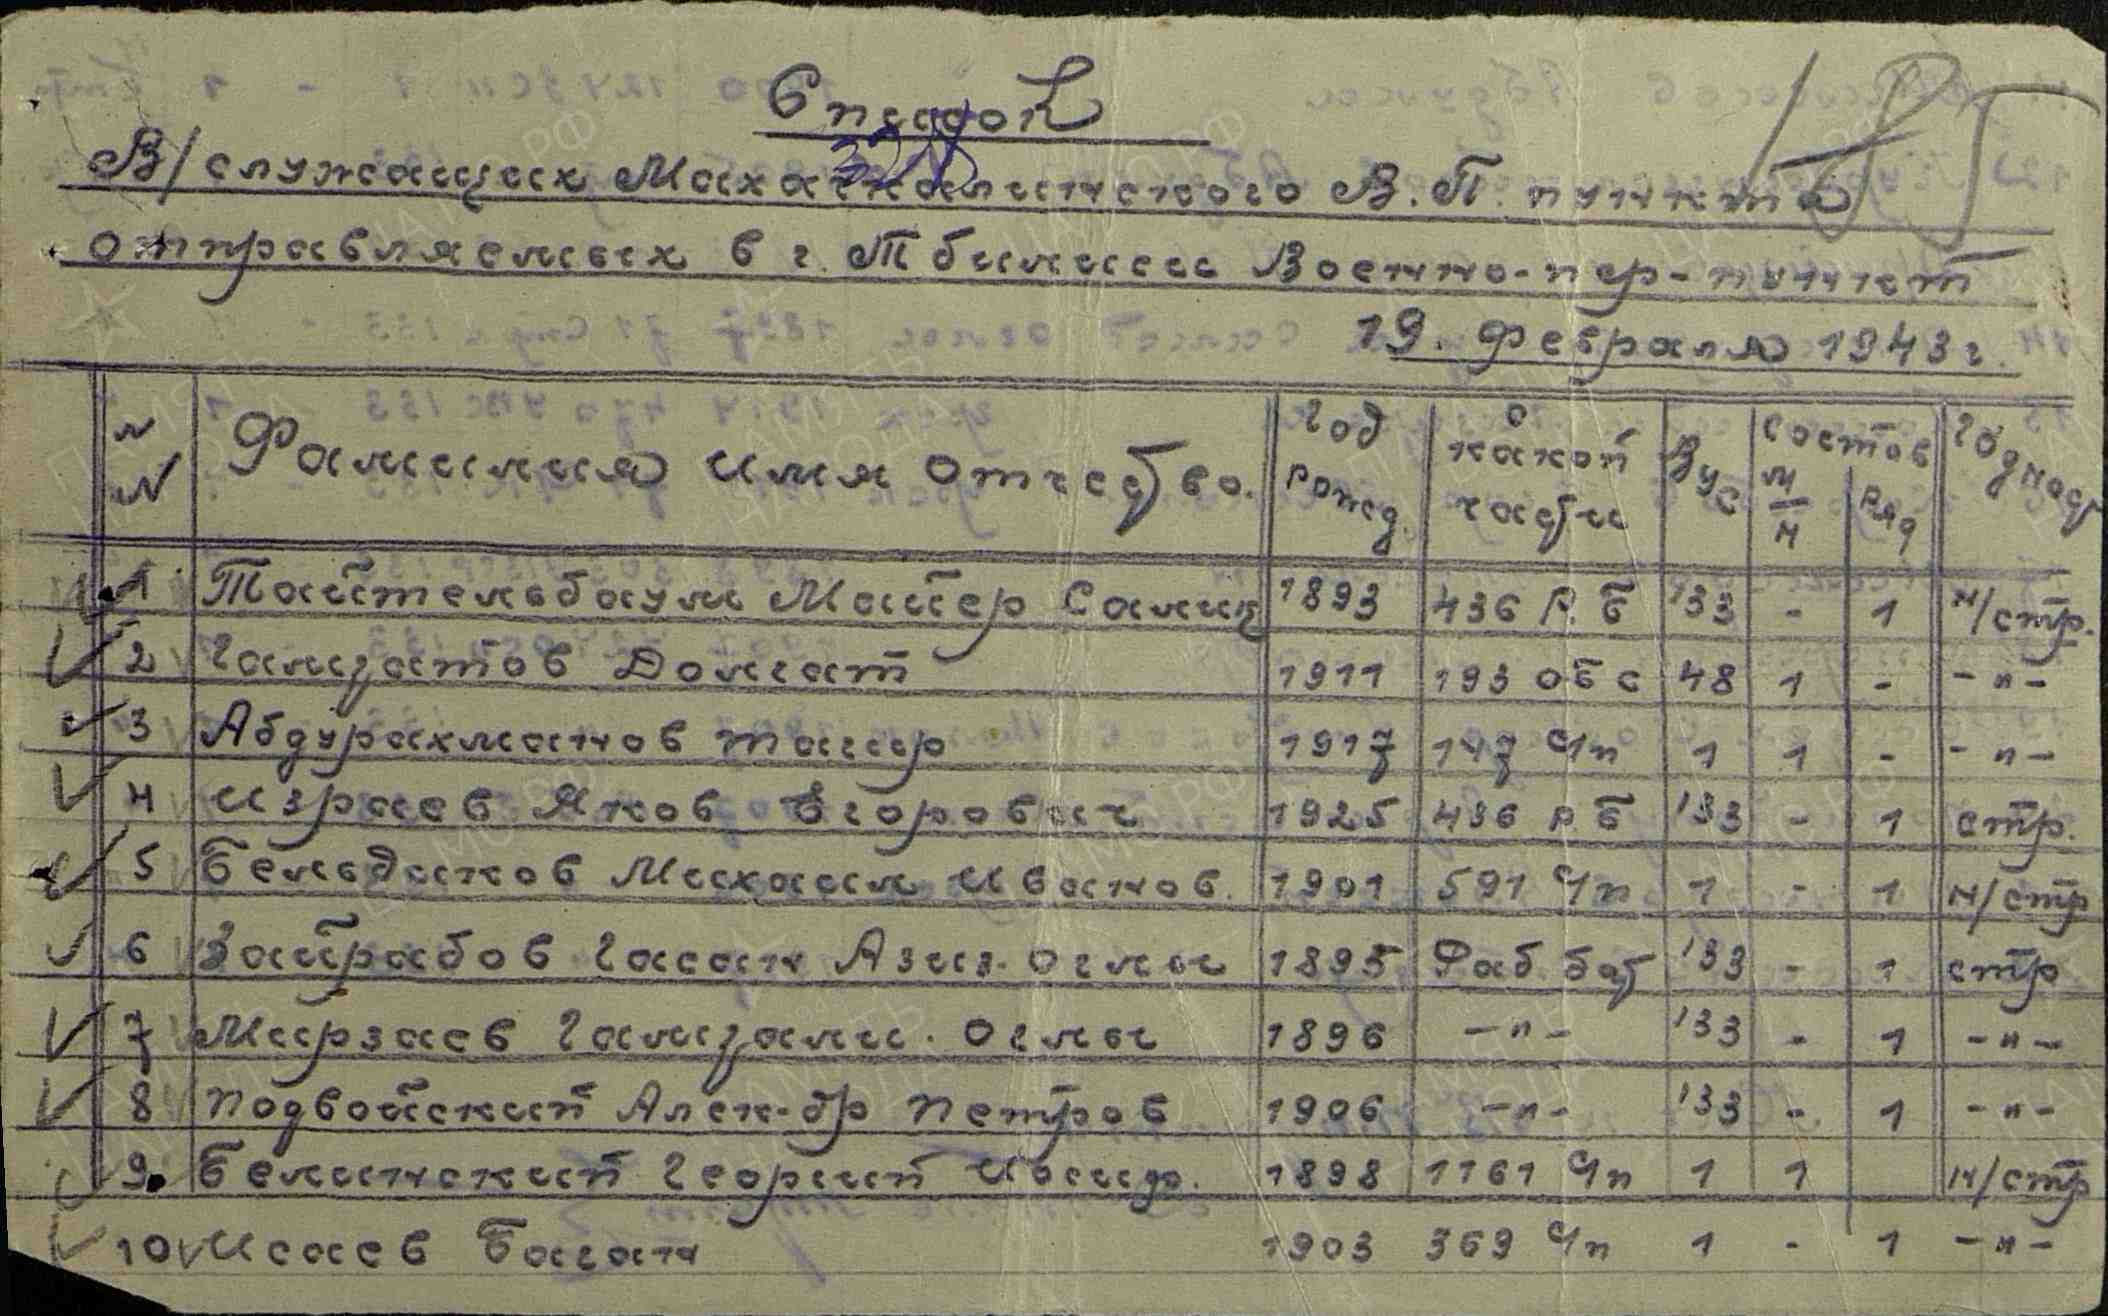 Список
В/служащих Махачкалинского В.П. пункта
отправляемых в г. Тбилиси Военно-пер-пункт
19. Февраля 1943 г.
№№ Фамилия имя отчество. Год рожд. с какой части ВУС состав м/н ряд годность
1 Тайтельбаум Майер Самиц 1893 436 Р.Б 133 - 1 н/стр.
2 Гамзатов Домгат 1911 193 ОБС 48 1 - -"-
3 Абдурахманов Тагир 1917 147 Чп 1 1 - -"-
4 Израев Яков Егорович 1925 436 Р.Б 133 - 1 стр.
5 Бельдиков Михаил Иванов. 1901 591 Чп 1 - 1 н/стр
6 Зайрабов Гасан Азиз. Оглы 1895 Фаб бат 133 - 1 стр
7 Мирзаев Гамзали. Оглы 1896 -"- 133 - 1 -"-
8 Подвойский Алек-др Петров 1906 -"- 133 - 1 -"-
9. Белинский Георгий 1898 1161 Чп 1 1 н/стр
10 Исаев Баган 1903 369 Чп 1 - 1 -"-